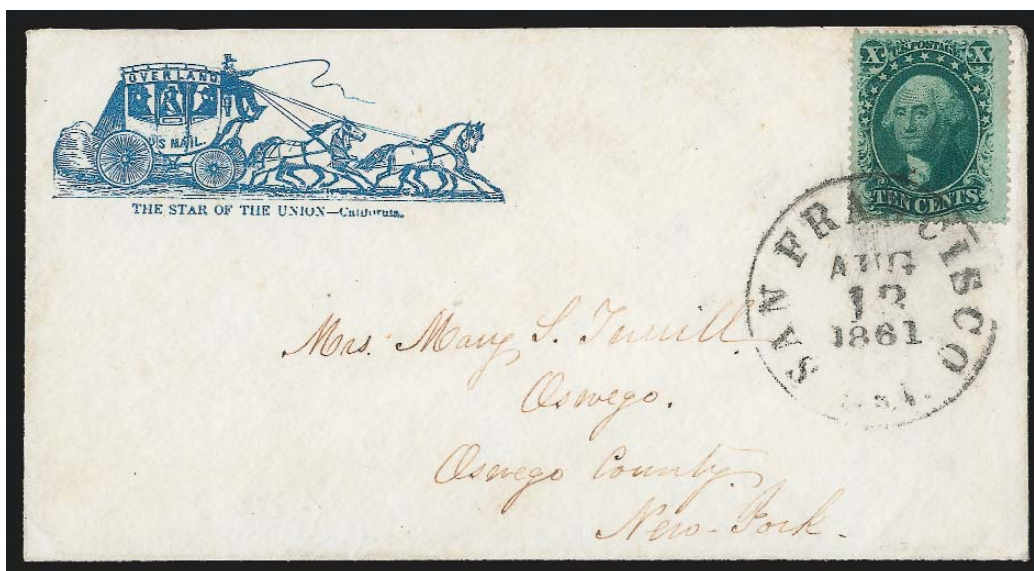 OVERLAND
U S MAIL.
THE STAR OF THE UNION—California.
X U.S. POSTAGE X
TEN CENTS
SAN FRANCISCO
AUG
13
1861
Mrs. Mary S. Turrill.
Oswego.
Oswego County
New-York.